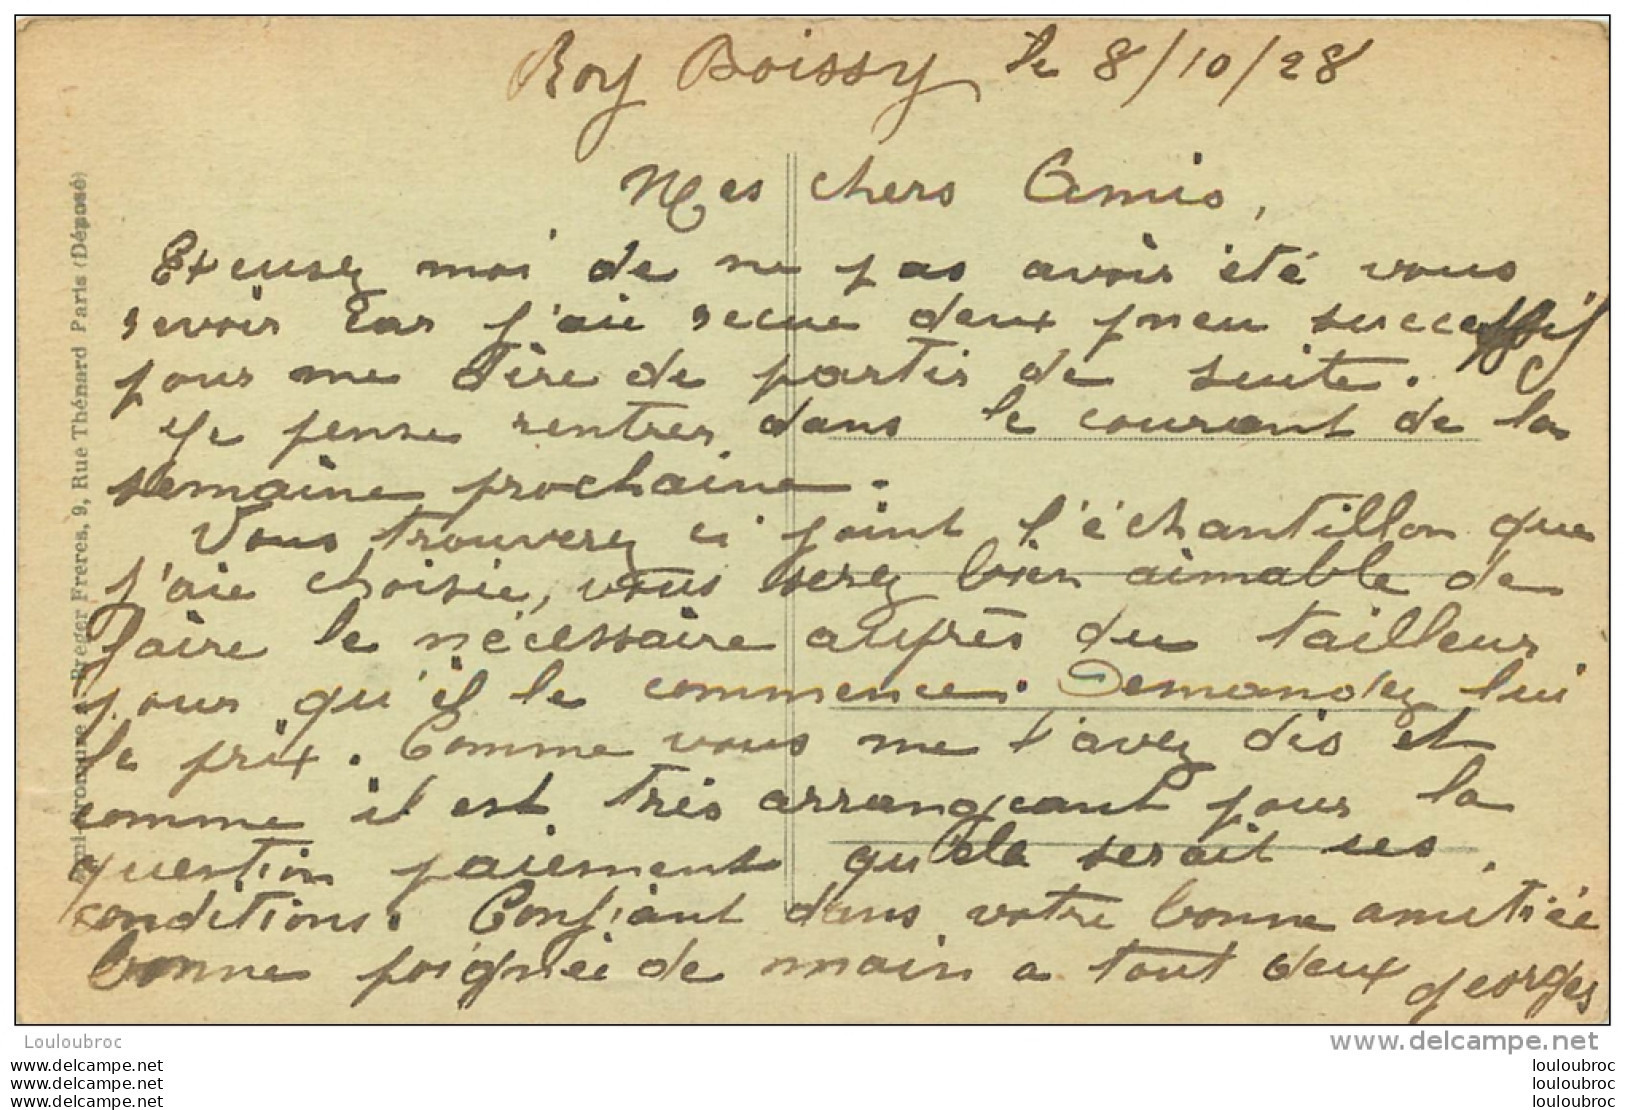 Roy Boissy le 8/10/28
Mes chers Amis,
Excusez moi de ne pas avoir été vous
revoir car j'aie recue deux pneu successif
pour me dire de partir de suite.
Je pense rentrer dans le courant de la
semaine prochaine.
Vous trouverez ci joint l'échantillon que
j'aie choisie, vous serez bien aimable de
faire le nécessaire auprès du tailleur
pour qu'il le commence. Demandez lui
le prix. Comme vous me l'avez dis et
comme il est très arrangeant pour la
question paiement qu'ele serait ses
conditions. Confiant dans votre bonne amitiée
bonne poignée de main a tout deux georges
Breger Frères, 9, Rue Thénard Paris (Déposé)
Louloubroc
www.delcampe.net
louloubroc
louloubroc
louloubroc
louloubroc
louloubroc
louloubroc